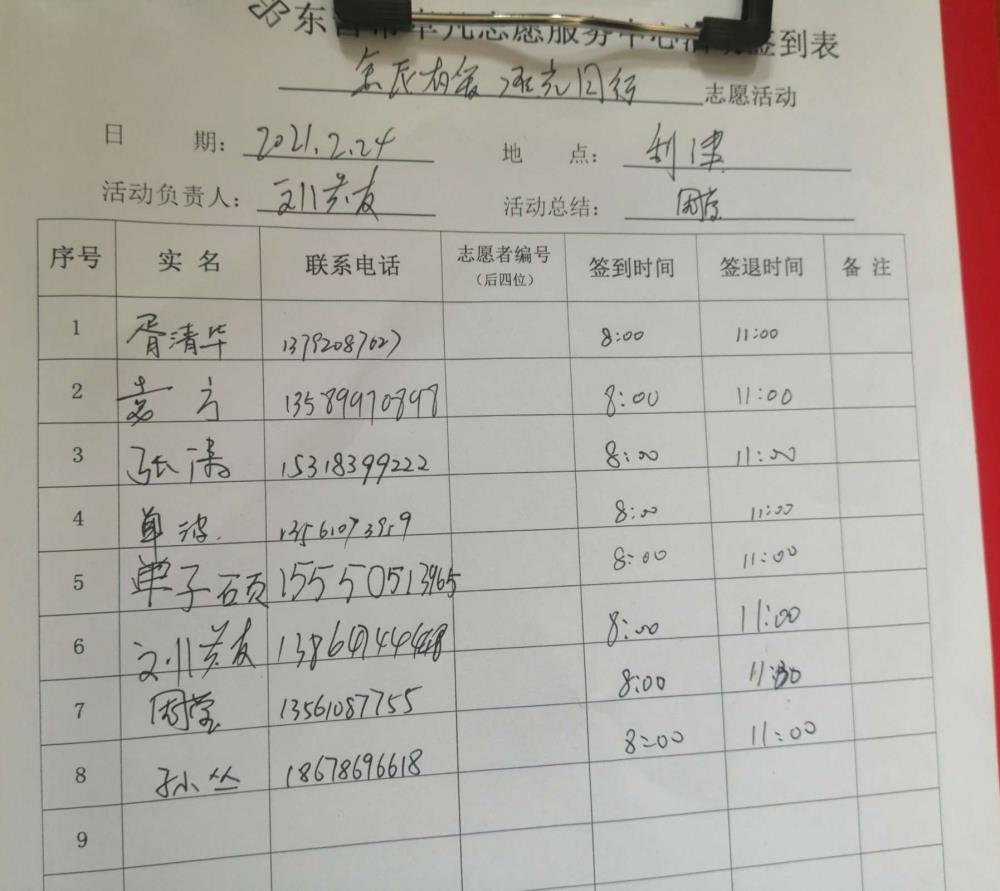 志愿服务中心活动签到表
志愿活动
日 期: 2021.2.24 地 点: 利津
活动负责人: 活动总结: 周莹
序号 实名 联系电话 志愿者编号 (后四位) 签到时间 签退时间 备注
1 胥清华 13792087027 8:00 11:00
2 13589970898 8:00 11:00
3 张涛 15318399222 8:00 11:00
4 单波 8:00 11:00
5 单子硕 15550513965 8:00 11:00
6 8:00 11:00
7 周莹 13561087755 8:00
8 孙丛 18678696618 8:00 11:00
9